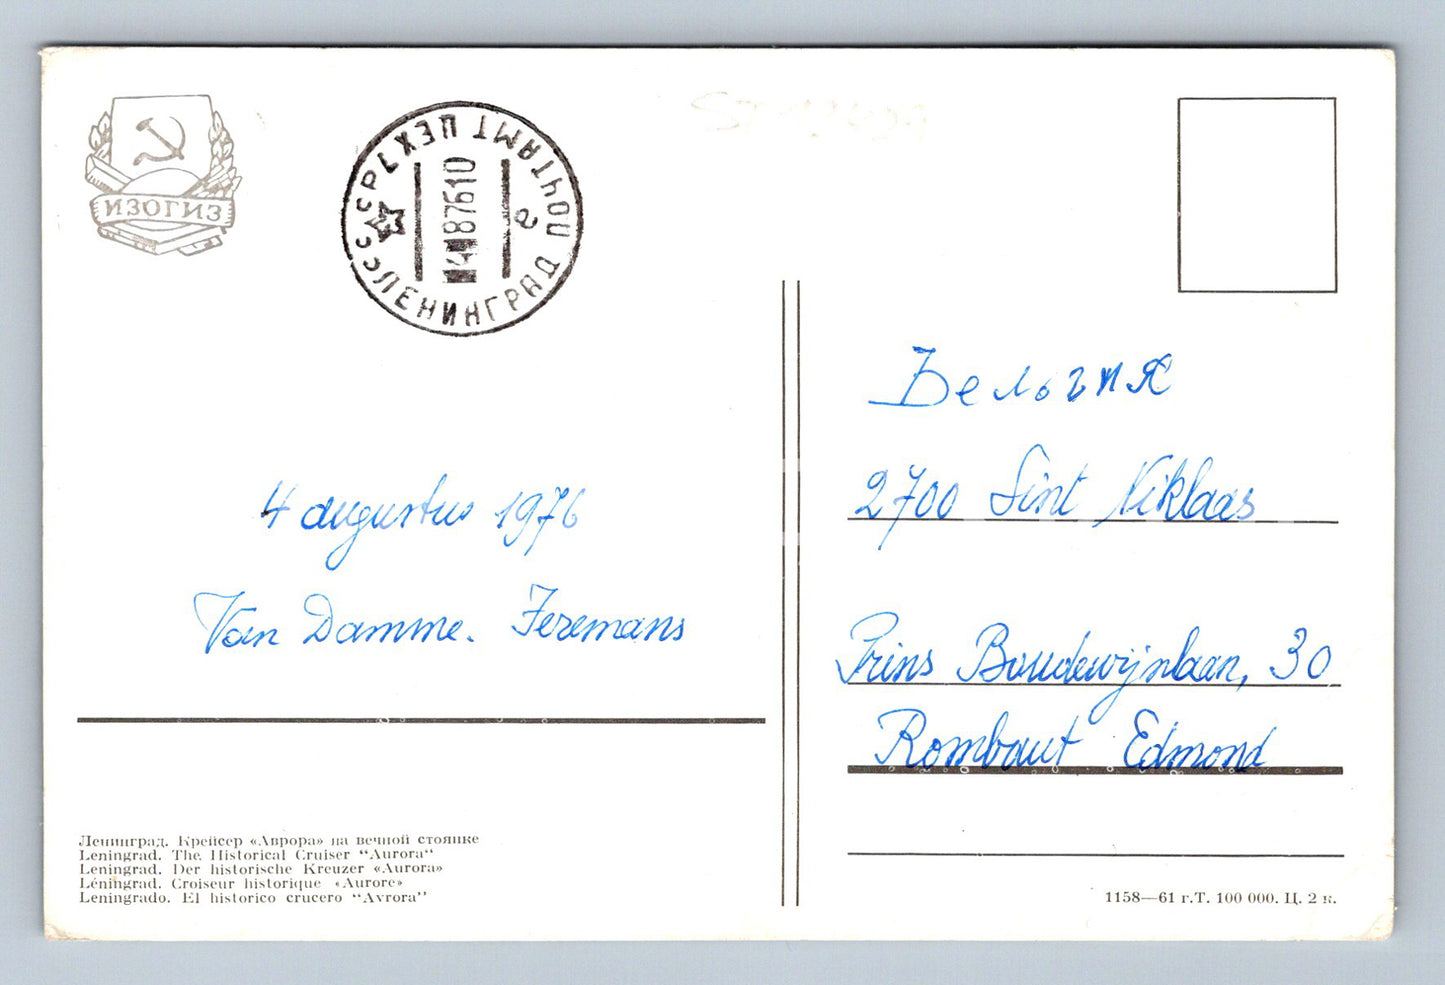 ИЗОГИЗ
ЛЕНИНГРАД ПОЧТАМТ ЦЕХ
СССР
87610
г
Бельгия
4 augustus 1976
2700 Sint Niklaas
Van Damme. Feremans
Prins Boudewijnlaan, 30
Rombaut Edmond
Ленинград. Крейсер «Аврора» на вечной стоянке
Leningrad. The Historical Cruiser “Aurora”
Leningrad. Der historische Kreuzer «Aurora»
Léningrad. Croiseur historique «Aurore»
Leningrado. El historico crucero “Avrora”
1158—61 г.Т. 100 000. Ц. 2 к.